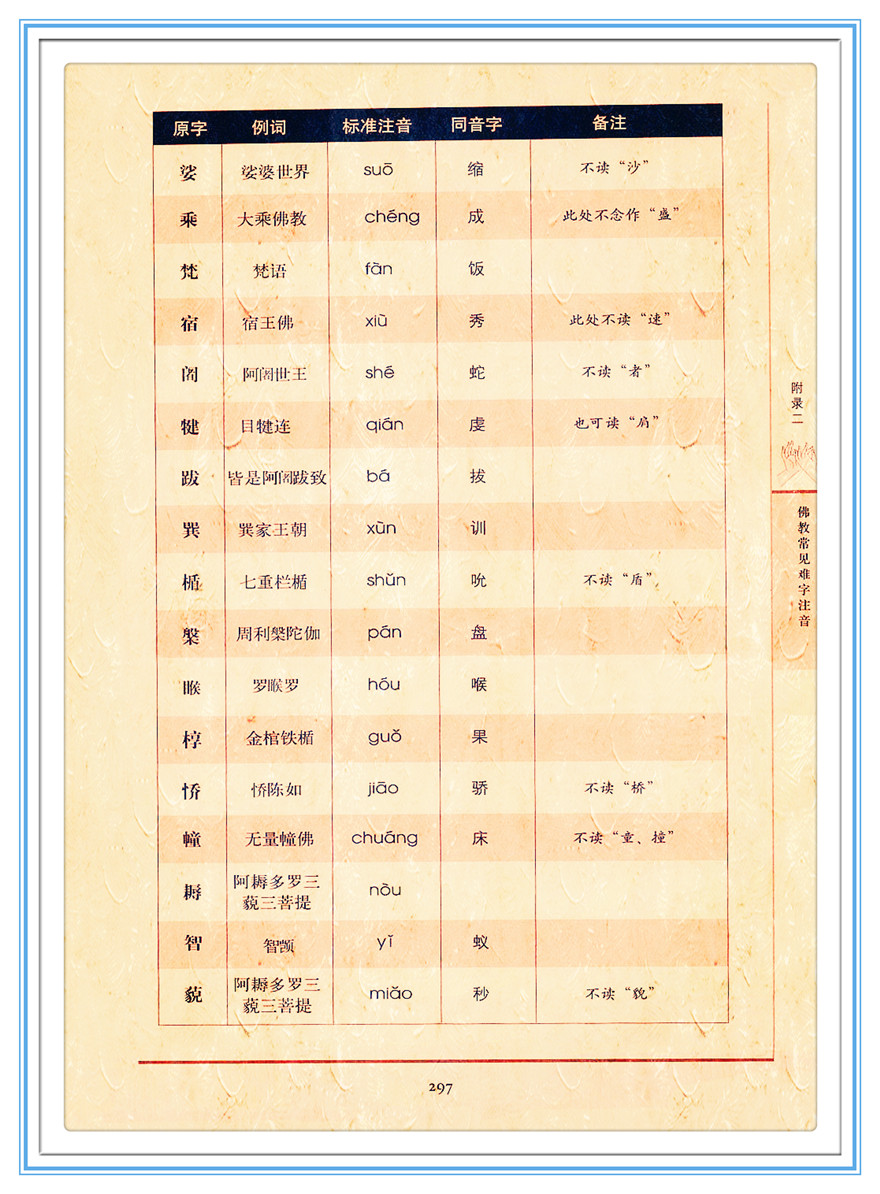 原字 例词 标准注音 同音字 备注
娑 娑婆世界 suō 缩 不读“沙”
乘 大乘佛教 chéng 成 此处不念作“盛”
梵 梵语 fàn 饭
宿 宿王佛 xiù 秀 此处不读“速”
阇 阿阇世王 shé 蛇 不读“者”
犍 目犍连 qián 虔 也可读“肩”
跋 皆是阿阇跋致 bá 拔
巽 巽家王朝 xùn 训
楯 七重栏楯 shǔn 吮 不读“盾”
槃 周利槃陀伽 pán 盘
睺 罗睺罗 hóu 喉
椁 金棺铁楯 guǒ 果
㤭 㤭陈如 jiāo 骄 不读“桥”
幢 无量幢佛 chuáng 床 不读“童、撞”
耨 阿耨多罗三
藐三菩提 nòu
智 智顗 yǐ 蚁
藐 阿耨多罗三
藐三菩提 miǎo 秒 不读“貌”
附录二
佛教常见难字注音
297